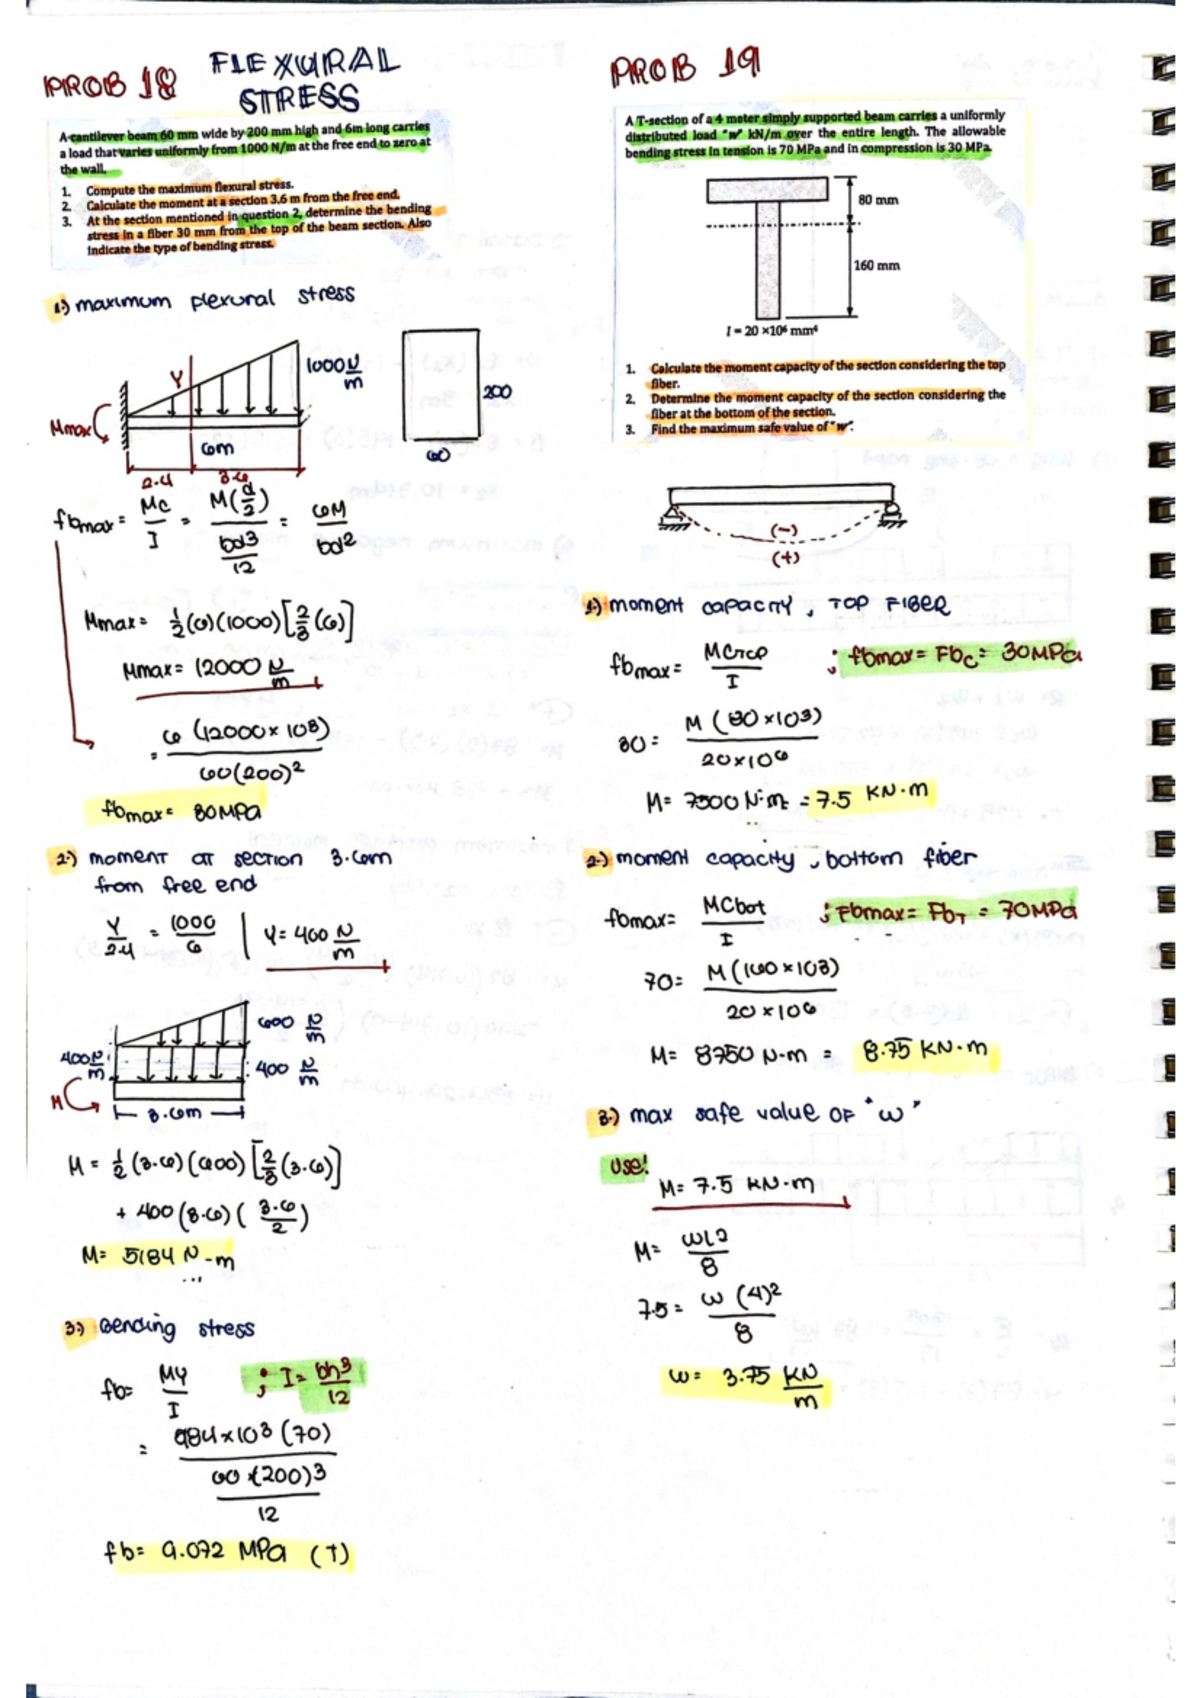 PROB 18
FLEXURAL
STRESS
A cantilever beam 60 mm wide by 200 mm high and 6m long carries
a load that varies uniformly from 1000 N/m at the free end to zero at
the wall.
1. Compute the maximum flexural stress.
2. Calculate the moment at a section 3.6 m from the free end.
3. At the section mentioned in question 2, determine the bending
stress in a fiber 30 mm from the top of the beam section. Also
indicate the type of bending stress.
1.) maximum flexural stress
Y
1000 N/m
200
Mmax
6m
60
2.4 3.6
fbmax = MC/I = M(d/2)/(bd3/12) = 6M/bd2
Mmax = 1/2(6)(1000)[2/3(6)]
Mmax = 12000 N/m
= 6(12000×103)/60(200)2
fbmax = 80MPa
2.) moment at section 3.6m
from free end
Y/2.4 = 1000/6 | Y = 400 N/m
600 N/m
400 N/m
400 N/m
M
3.6m
M = 1/2(3.6)(600)[2/3(3.6)]
+ 400(3.6)(3.6/2)
M = 5184 N-m
3.) Bending stress
fb = MY/I ; I = bh3/12
= 984×103(70)
60×(200)3
12
fb = 9.072 MPa (T)
PROB 19
A T-section of a 4 meter simply supported beam carries a uniformly
distributed load "w" kN/m over the entire length. The allowable
bending stress in tension is 70 MPa and in compression is 30 MPa.
80 mm
160 mm
I = 20 ×10⁶ mm⁴
1. Calculate the moment capacity of the section considering the top
fiber.
2. Determine the moment capacity of the section considering the
fiber at the bottom of the section.
3. Find the maximum safe value of "w".
(-)
(+)
1.) moment capacity, TOP FIBER
fbmax = MCTOP/I ; fbmax = Fbc = 30MPa
30 = M(80×103)/20×106
M = 7500 N·m = 7.5 KN·m
2.) moment capacity, bottom fiber
fbmax = MCbot/I ; Fbmax = FbT = 70MPa
70 = M(160×103)/20×106
M = 8750 N-m = 8.75 KN·m
3.) max safe value OF "w"
use!
M = 7.5 KN·m
M = WL2/8
7.5 = w(4)2/8
w = 3.75 KN/m